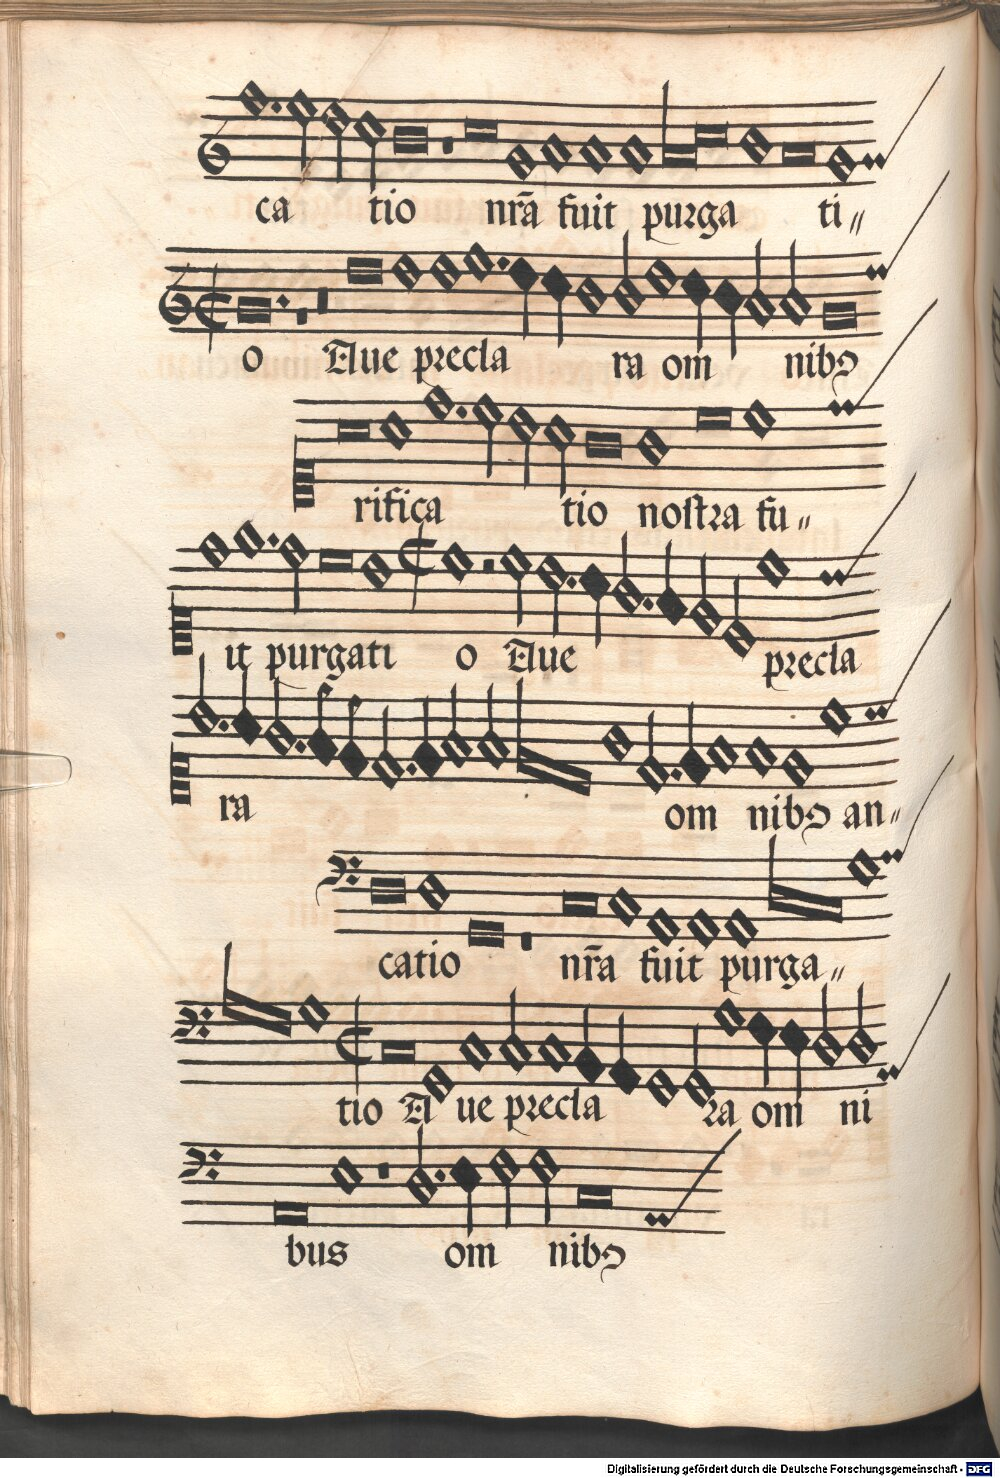 ca tio nr̃a fuit purga ti〃
o Aue precla ra om nibꝫ
rifica tio nostra fu〃
it purgati o Aue precla
ra om nibꝫ an〃
catio nr̃a fuit purga〃
tio A ue precla ra om ni
bus om nibꝫ
Digitalisierung gefördert durch die Deutsche Forschungsgemeinschaft - DFG